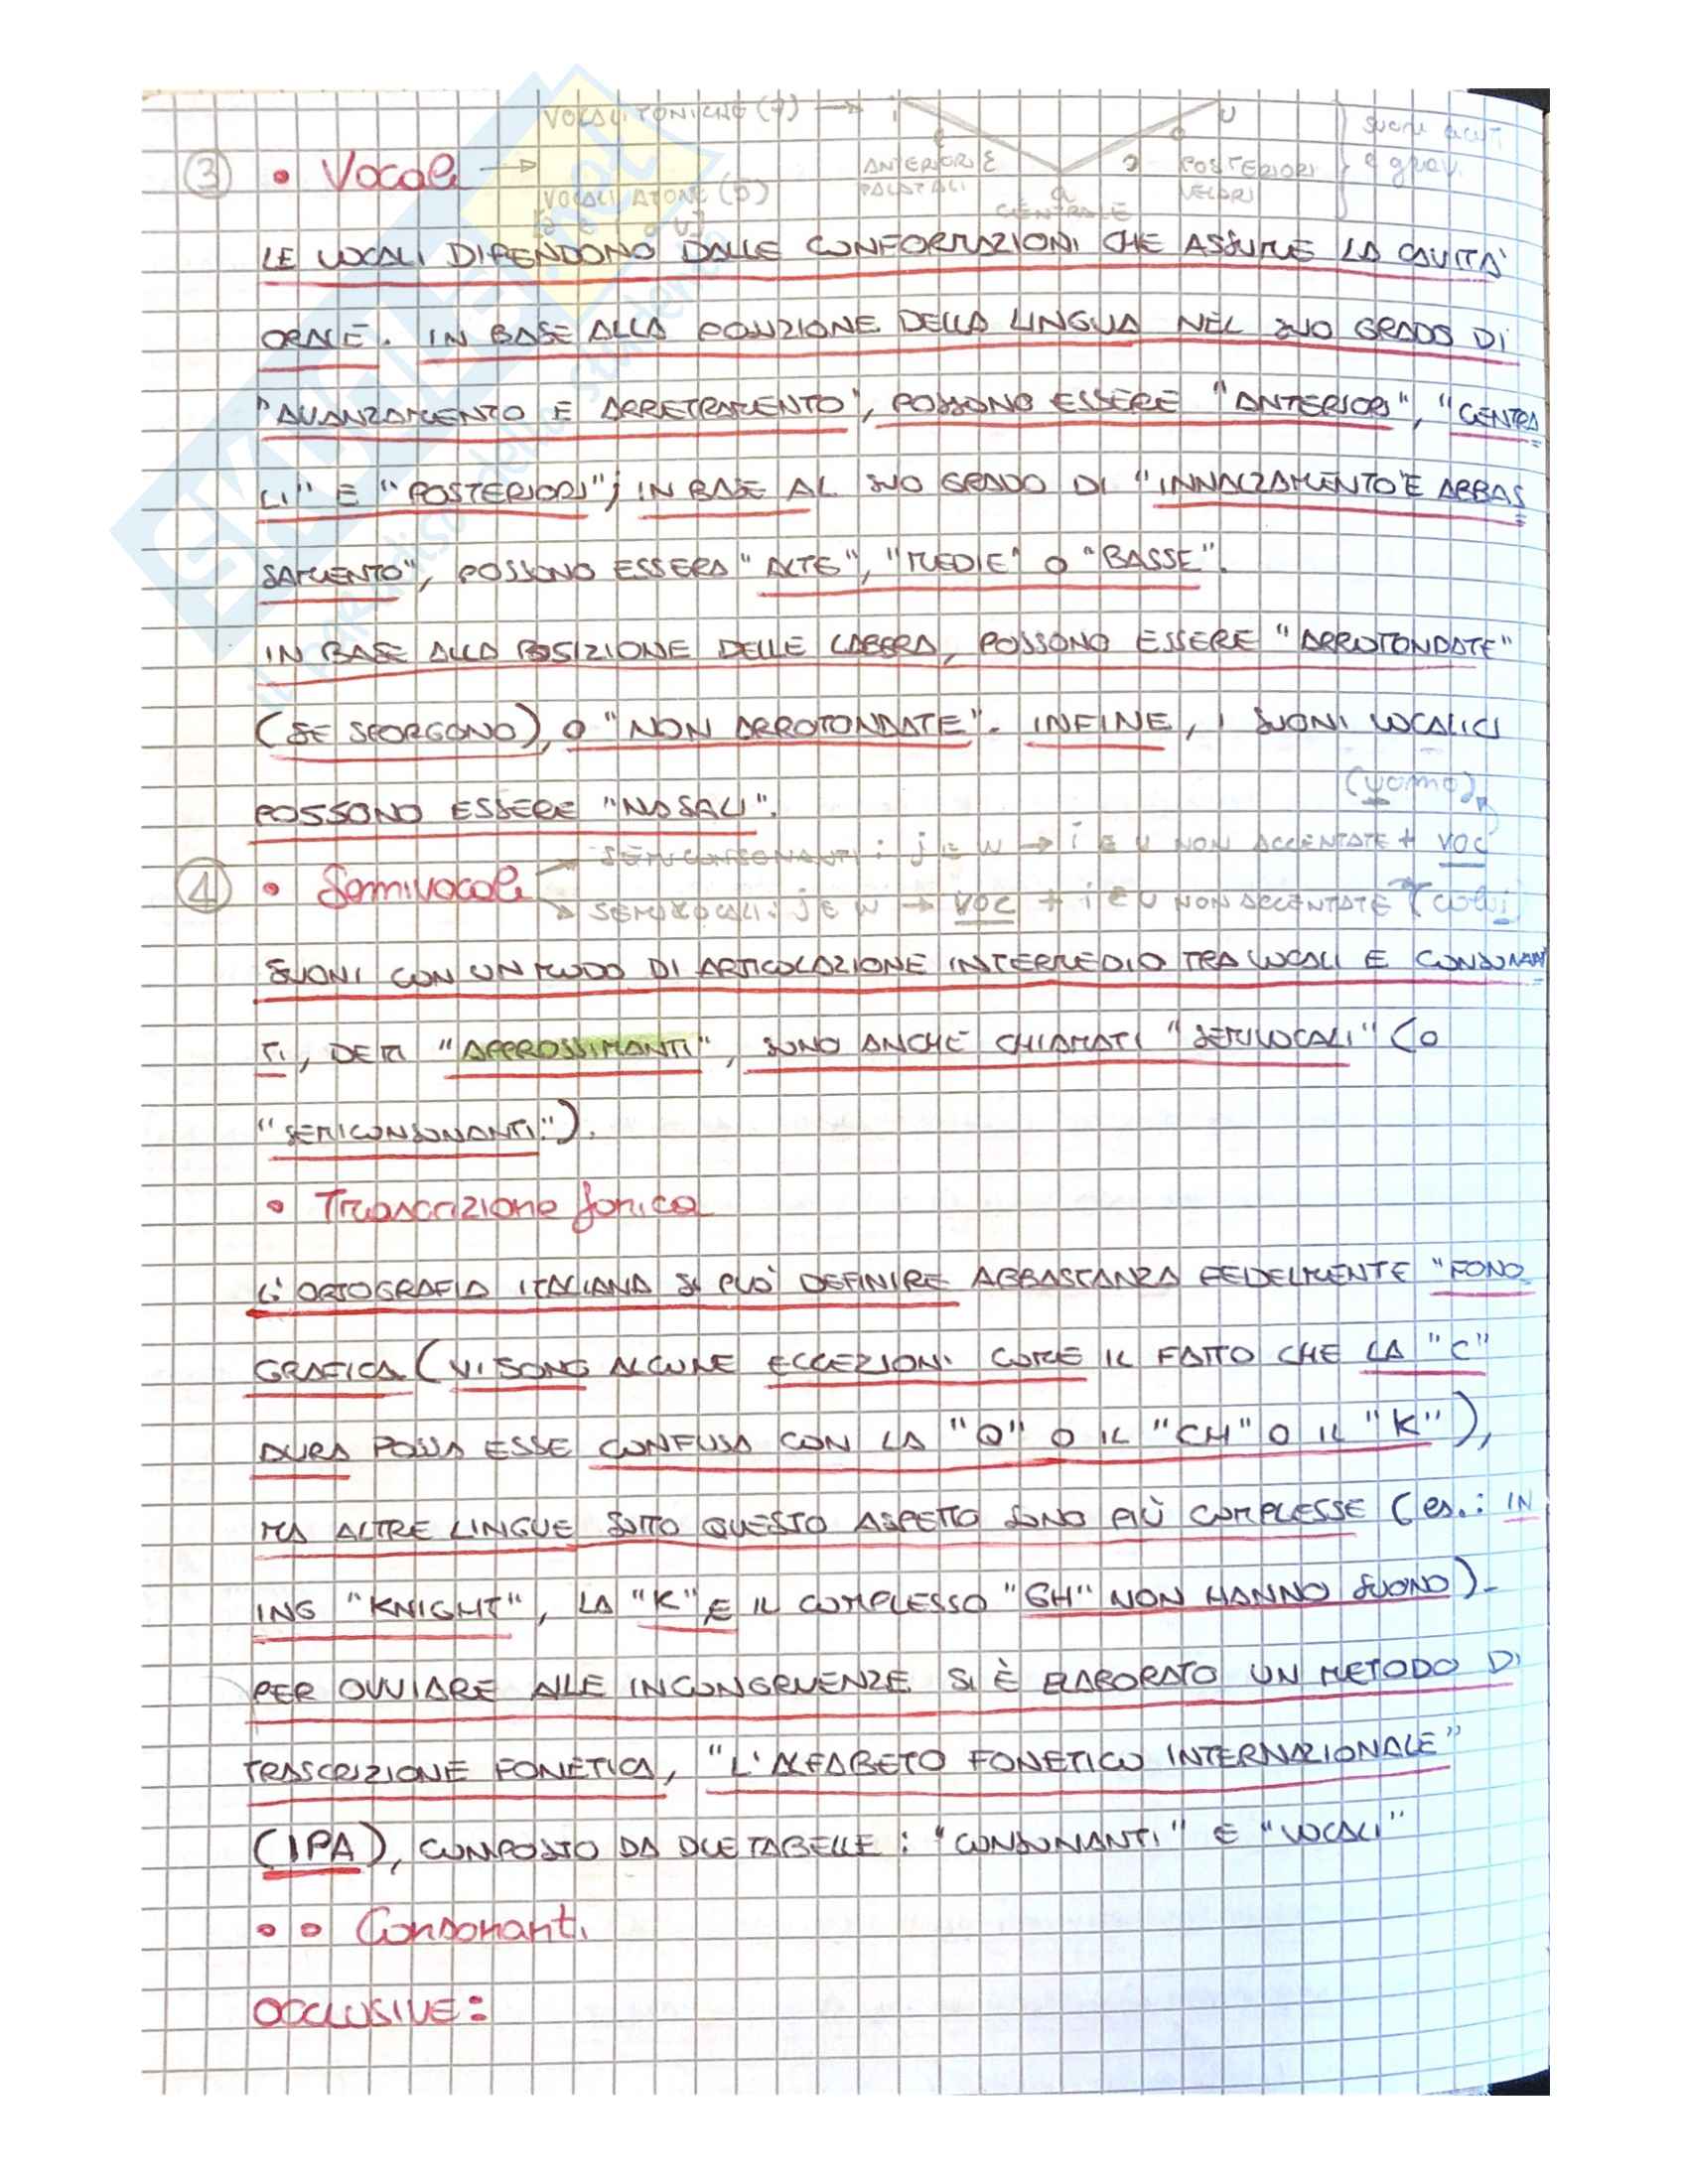 VOCALI TONICHE (7) → i u
e o
③ • Vocali → ANTERIORI ɛ ɔ POSTERIORI
PALATALI a VELARI
VOCALI ATONE (5) CENTRALE
[a e i o u]
suoni acuti
e gravi
LE VOCALI DIPENDONO DALLE CONFORMAZIONI CHE ASSUME LA CAVITA'
ORALE. IN BASE ALLA POSIZIONE DELLA LINGUA NEL SUO GRADO DI
"AVANZAMENTO E ARRETRAMENTO", POSSONO ESSERE "ANTERIORI", "CENTRA
LI" E "POSTERIORI"; IN BASE AL SUO GRADO DI "INNALZAMENTO E ABBAS
SAMENTO", POSSONO ESSERA "ALTE", "MEDIE" O "BASSE".
IN BASE ALLA POSIZIONE DELLE LABBRA, POSSONO ESSERE "ARROTONDATE"
(SE SPORGONO), O "NON ARROTONDATE". INFINE, I SUONI VOCALICI
POSSONO ESSERE "NASALI".
(uomo)
SEMICONSONANTI: j E w → i E u NON ACCENTATE + VOC
④ • Semivocali
SEMIVOCALI: j E w → VOC + i E U NON ACCENTATE (colui
SUONI CON UN MODO DI ARTICOLAZIONE INTERMEDIO TRA VOCALI E CONSONAN
TI, DETTI "APPROSSIMANTI", SONO ANCHE CHIAMATI "SEMIVOCALI" (O
"SEMICONSONANTI").
• Trascrizione fonica
L'ORTOGRAFIA ITALIANA SI PUO' DEFINIRE ABBASTANZA FEDELMENTE "FONO
GRAFICA (VI SONO ALCUNE ECCEZIONI COME IL FATTO CHE LA "C"
DURA POSSA ESSE CONFUSA CON LA "Q" O IL "CH" O IL "K"),
MA ALTRE LINGUE SOTTO QUESTO ASPETTO SONO PIÙ COMPLESSE (es.: IN
ING "KNIGHT", LA "K" E IL COMPLESSO "GH" NON HANNO SUONO).
PER OVVIARE ALLE INCONGRUENZE SI È ELABORATO UN METODO DI
TRASCRIZIONE FONETICA, "L'ALFABETO FONETICO INTERNAZIONALE"
(IPA), COMPOSTO DA DUE TABELLE: "CONSONANTI" E "VOCALI"
• • Consonanti
OCCLUSIVE: